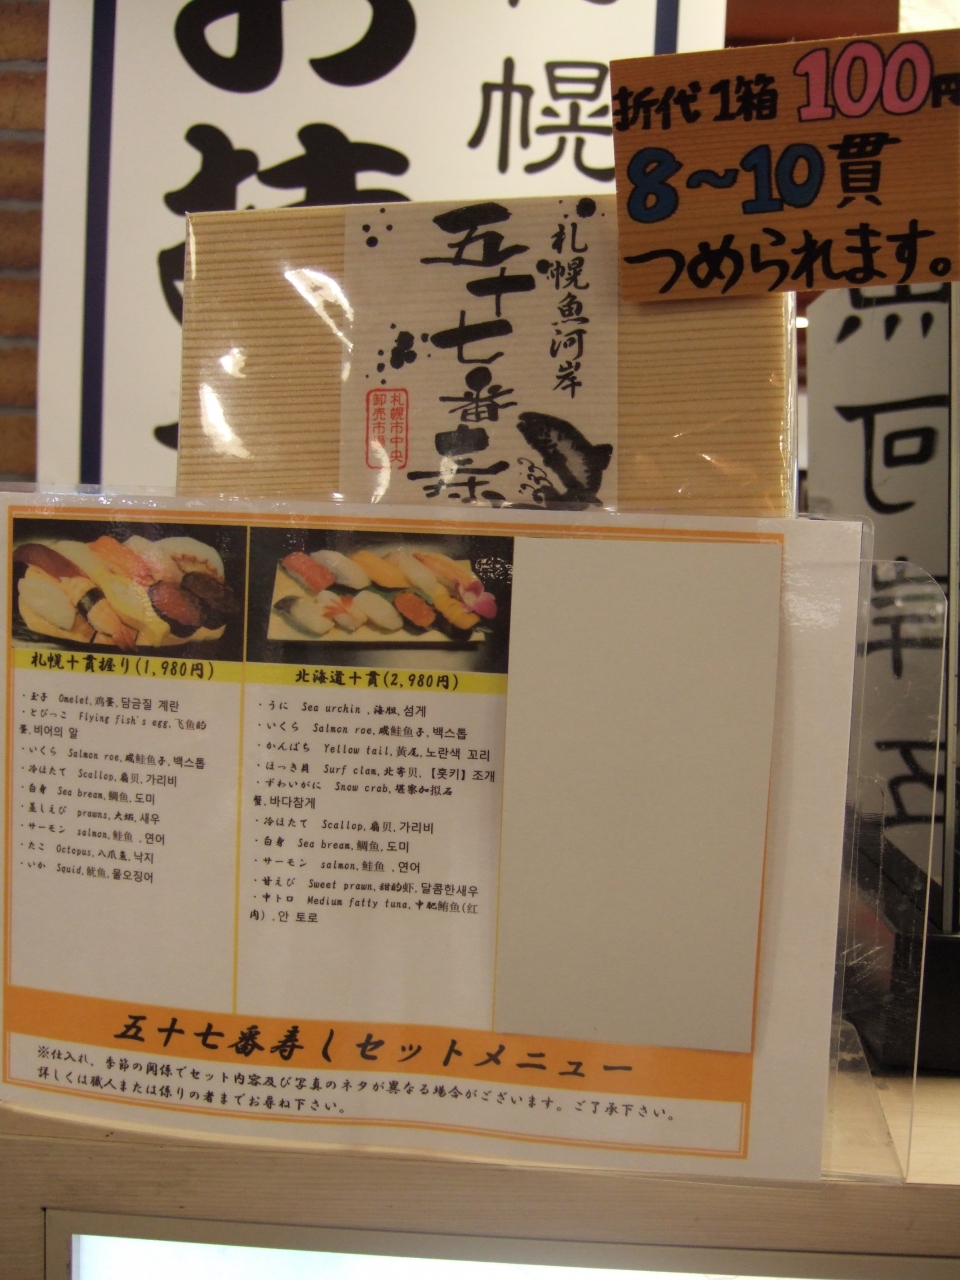 お
札幌
折代1箱 100円
8~10貫
つめられます。
札幌魚河岸
五十七番寿
札幌市中央
卸売市場
札幌十貫握り(1,980円)
・玉子 Omelet,鸡蛋,담금질 계란
・とびっこ Flying fish's egg,飞鱼的
蛋,비어의 알
・いくら Salmon roe,咸鲑鱼子,백스톱
・冷ほたて Scallop,扇贝,가리비
・白身 Sea bream,鯛鱼,도미
・蒸しえび prawns,大蝦,새우
・サーモン salmon,鲑鱼 ,연어
・たこ Octopus,八爪鱼,낙지
・いか Squid,鱿鱼,물오징어
北海道十貫(2,980円)
・うに Sea urchin ,海胆,섬게
・いくら Salmon roe,咸鲑鱼子,백스톱
・かんぱち Yellow tail,黄尾,노란색 꼬리
・ほっき貝 Surf clam,北寄贝,【홋키】조개
・ずわいがに Snow crab,堪察加拟石
蟹,바다참게
・冷ほたて Scallop,扇贝,가리비
・白身 Sea bream,鯛鱼,도미
・サーモン salmon,鲑鱼 ,연어
・甘えび Sweet prawn,甜的虾,달콤한새우
・中トロ Medium fatty tuna,中肥鲔鱼(红
肉) ,안 토로
五十七番寿しセットメニュー
※仕入れ、季節の関係でセット内容及び写真のネタが異なる場合がございます。ご了承下さい。
詳しくは職人または係りの者までお尋ね下さい。
河岸五